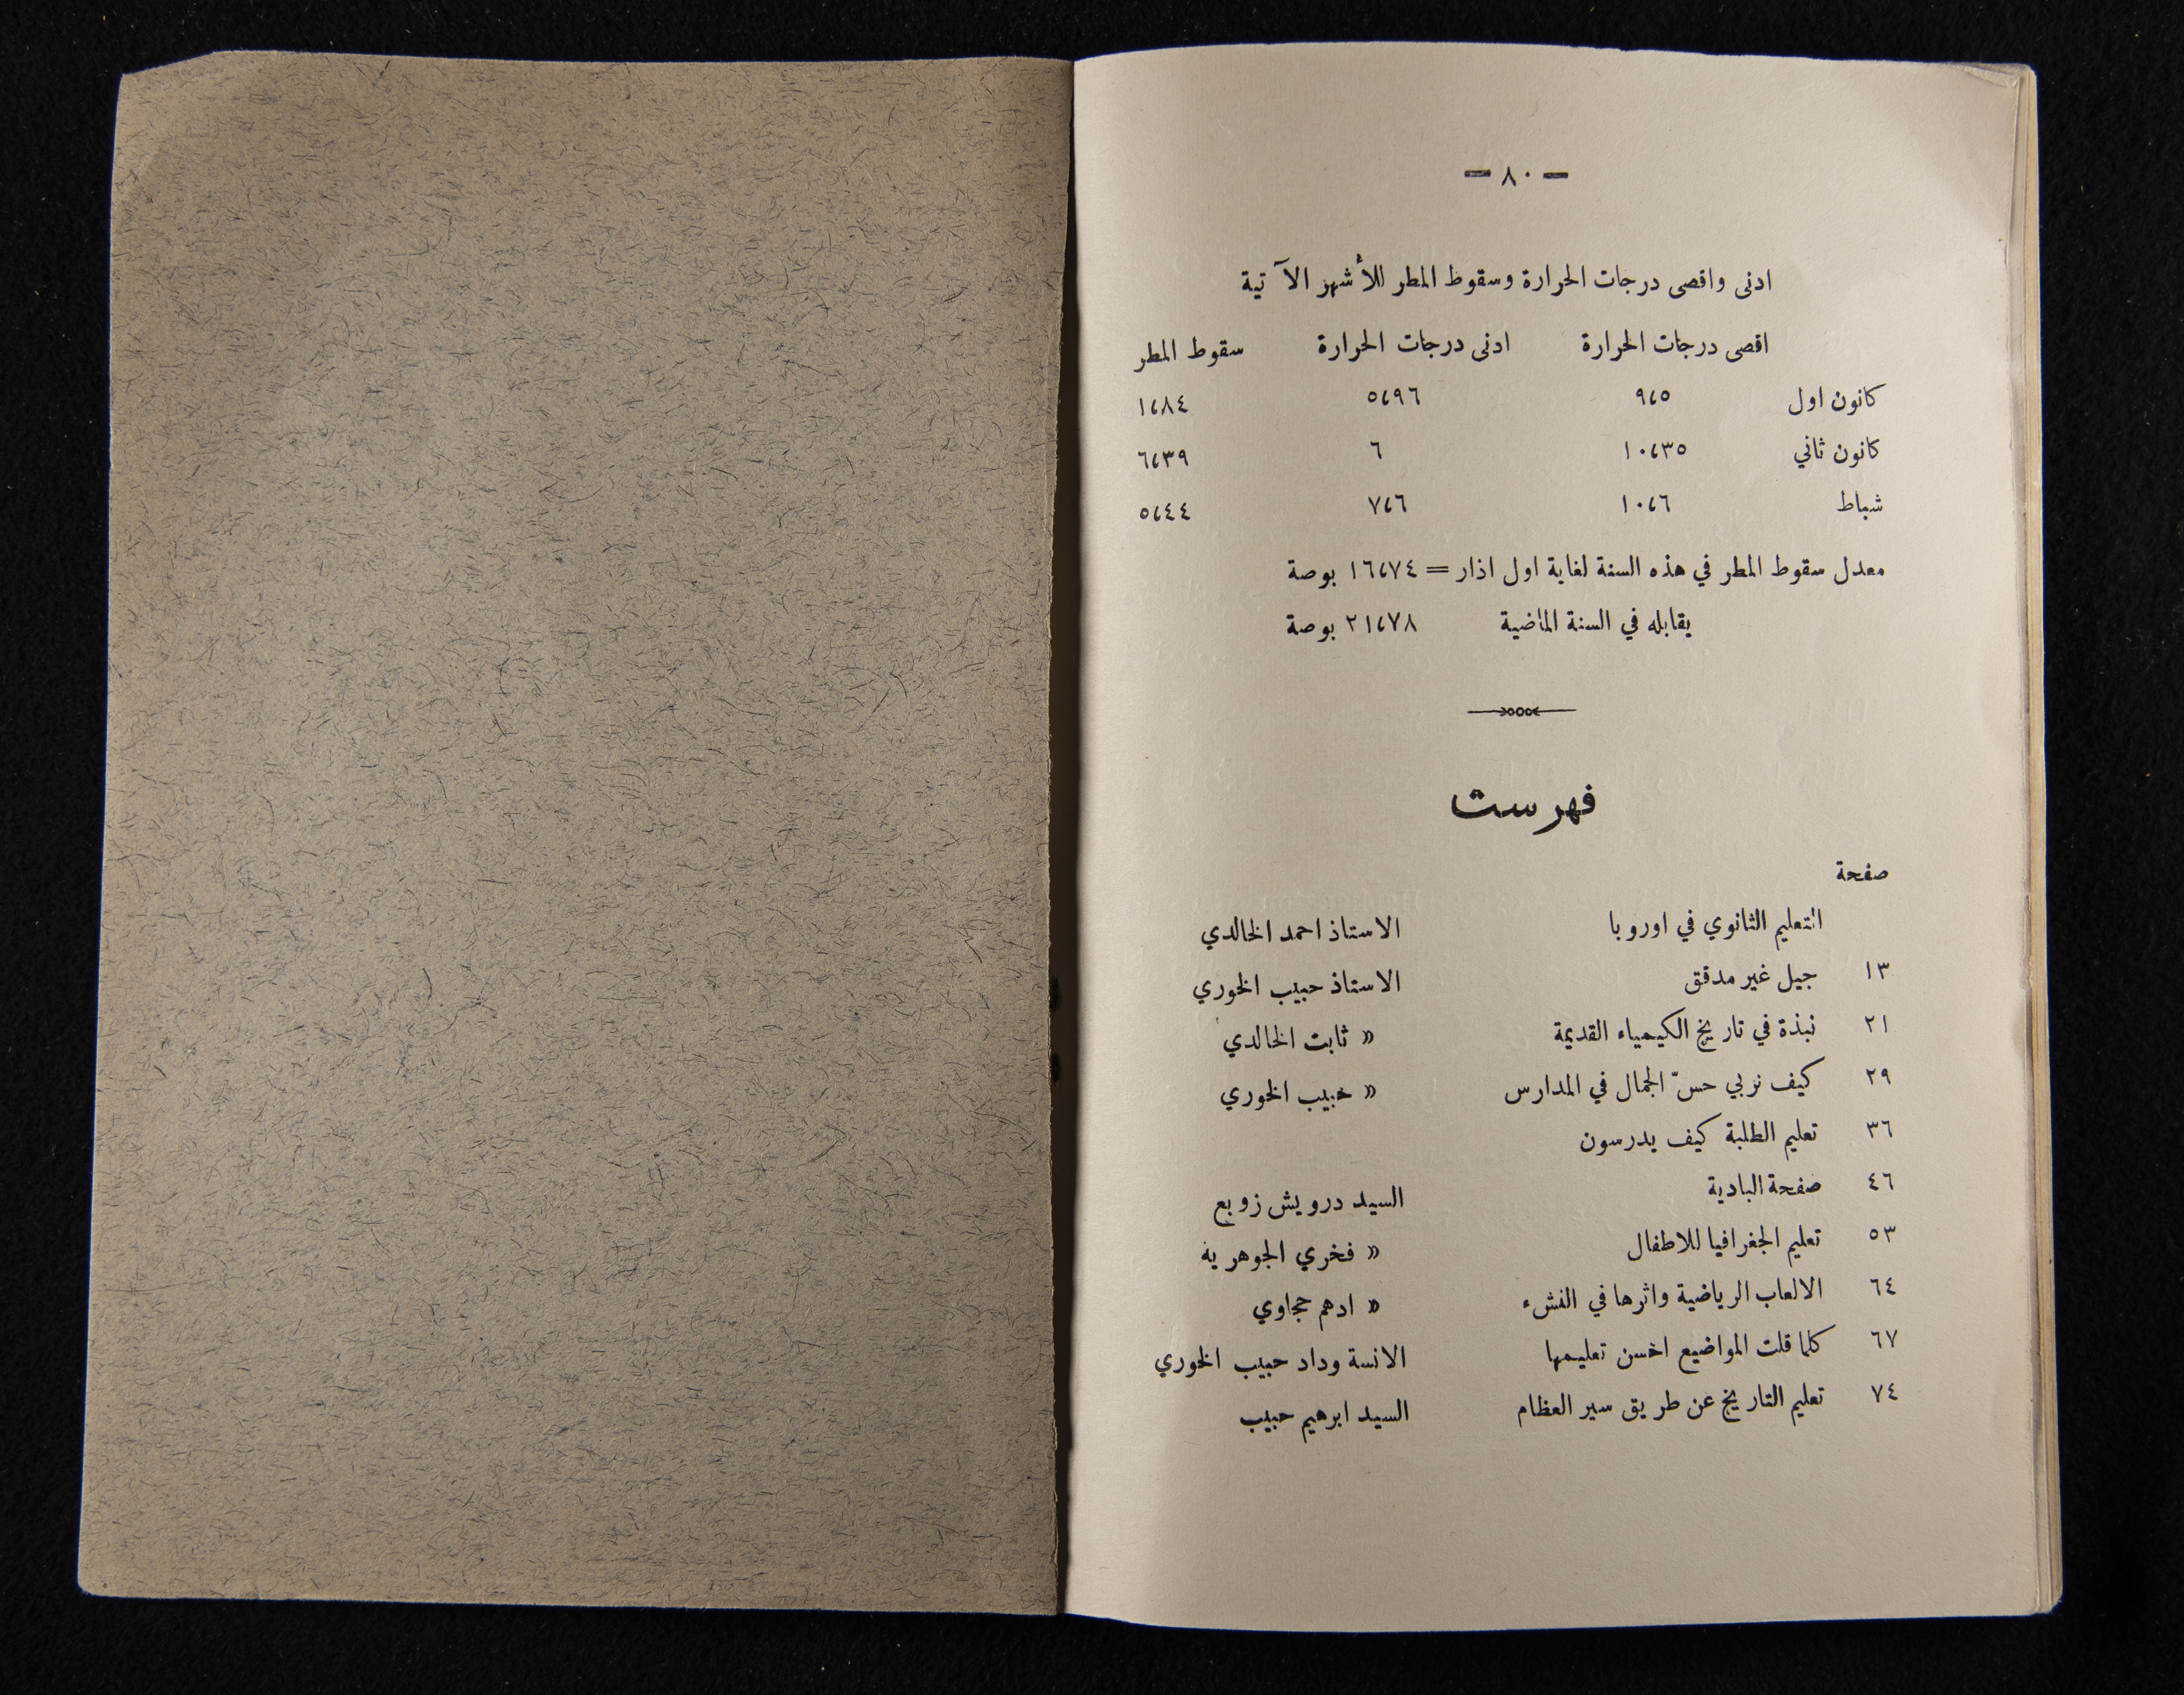 — ٨٠ —
ادنى واقصى درجات الحرارة وسقوط المطر للأشهر الآتية
اقصى درجات الحرارة ادنى درجات الحرارة سقوط المطر
كانون اول ٩،٥ ٥،٩٦ ١،٨٤
كانون ثاني ١٠،٣٥ ٦ ٦،٣٩
شباط ١٠،٦ ٧،٦ ٥،٤٤
معدل سقوط المطر في هذه السنة لغاية اول اذار = ١٦،٧٤ بوصة
يقابله في السنة الماضية ٢١،٧٨ بوصة
فهرست
صفحة
التعليم الثانوي في اوروبا الاستاذ احمد الخالدي
١٣ جيل غير مدقق الاستاذ حبيب الخوري
٢١ نبذة في تاريخ الكيمياء القديمة » ثابت الخالدي
٢٩ كيف نربي حسّ الجمال في المدارس » حبيب الخوري
٣٦ تعليم الطلبة كيف يدرسون
٤٦ صفحة البادية السيد درويش زوبع
٥٣ تعليم الجغرافيا للاطفال » فخري الجوهريه
٦٤ الالعاب الرياضية واثرها في النشء » ادهم حجاوي
٦٧ كلما قلت المواضيع احسن تعليمها الانسة وداد حبيب الخوري
٧٤ تعليم التاريخ عن طريق سير العظام السيد ابرهيم حبيب